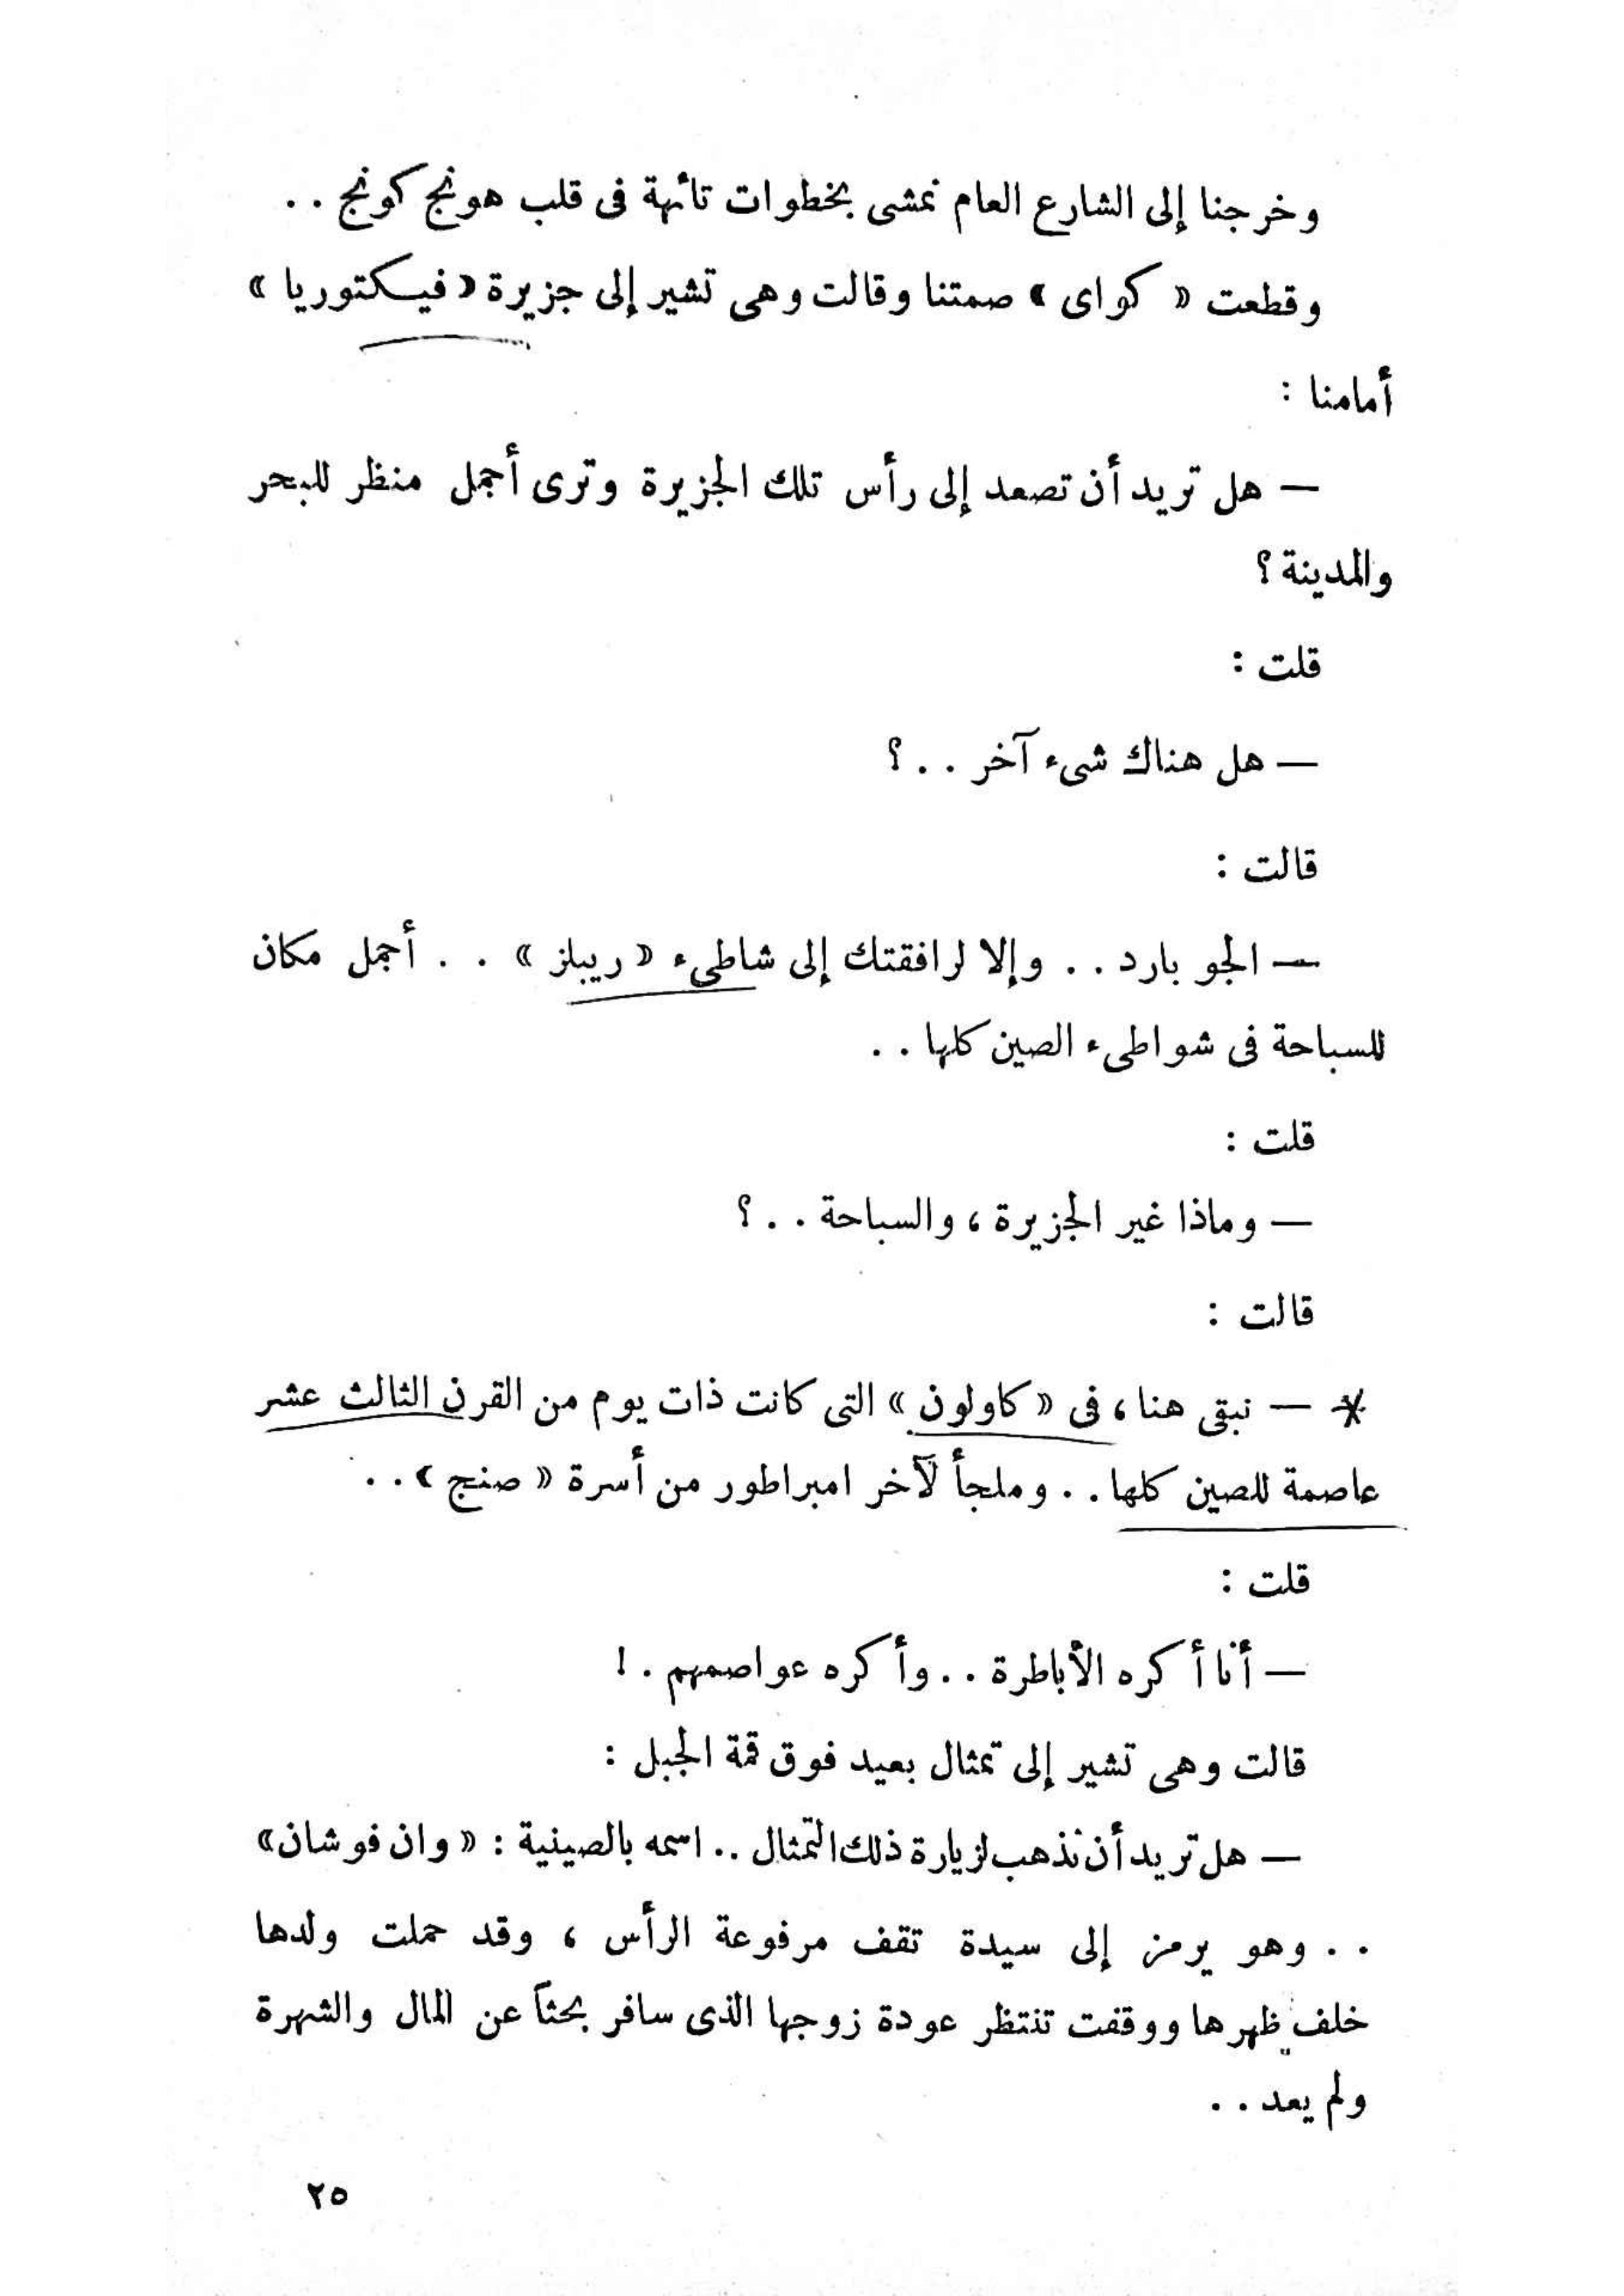 وخرجنا إلى الشارع العام نمشى بخطوات تائهة فى قلب هونج كونج ..
وقطعت « كواى » صمتنا وقالت وهى تشير إلى جزيرة « فيكتوريا »
أمامنا :
— هل تريد أن تصعد إلى رأس تلك الجزيرة وترى أجمل منظر للبحر
والمدينة ؟
قلت :
— هل هناك شىء آخر . . ؟
قالت :
— الجو بارد . . وإلا لرافقتك إلى شاطىء « ريبلز » . . أجمل مكان
للسباحة فى شواطىء الصين كلها . .
قلت :
— وماذا غير الجزيرة ، والسباحة . . ؟
قالت :
* — نبقى هنا ، فى « كاولون » التى كانت ذات يوم من القرن الثالث عشر
عاصمة للصين كلها . . وملجأ لآخر امبراطور من أسرة « صنج » . .
قلت :
— أنا أكره الأباطرة . . وأكره عواصمهم . !
قالت وهى تشير إلى تمثال بعيد فوق قمة الجبل :
— هل تريد أن نذهب لزيارة ذلك التمثال .. اسمه بالصينية : « وان فو شان »
. . وهو يرمز إلى سيدة تقف مرفوعة الرأس ، وقد حملت ولدها
خلف ظهرها ووقفت تنتظر عودة زوجها الذى سافر بحثاً عن المال والشهرة
ولم يعد . .
٢٥